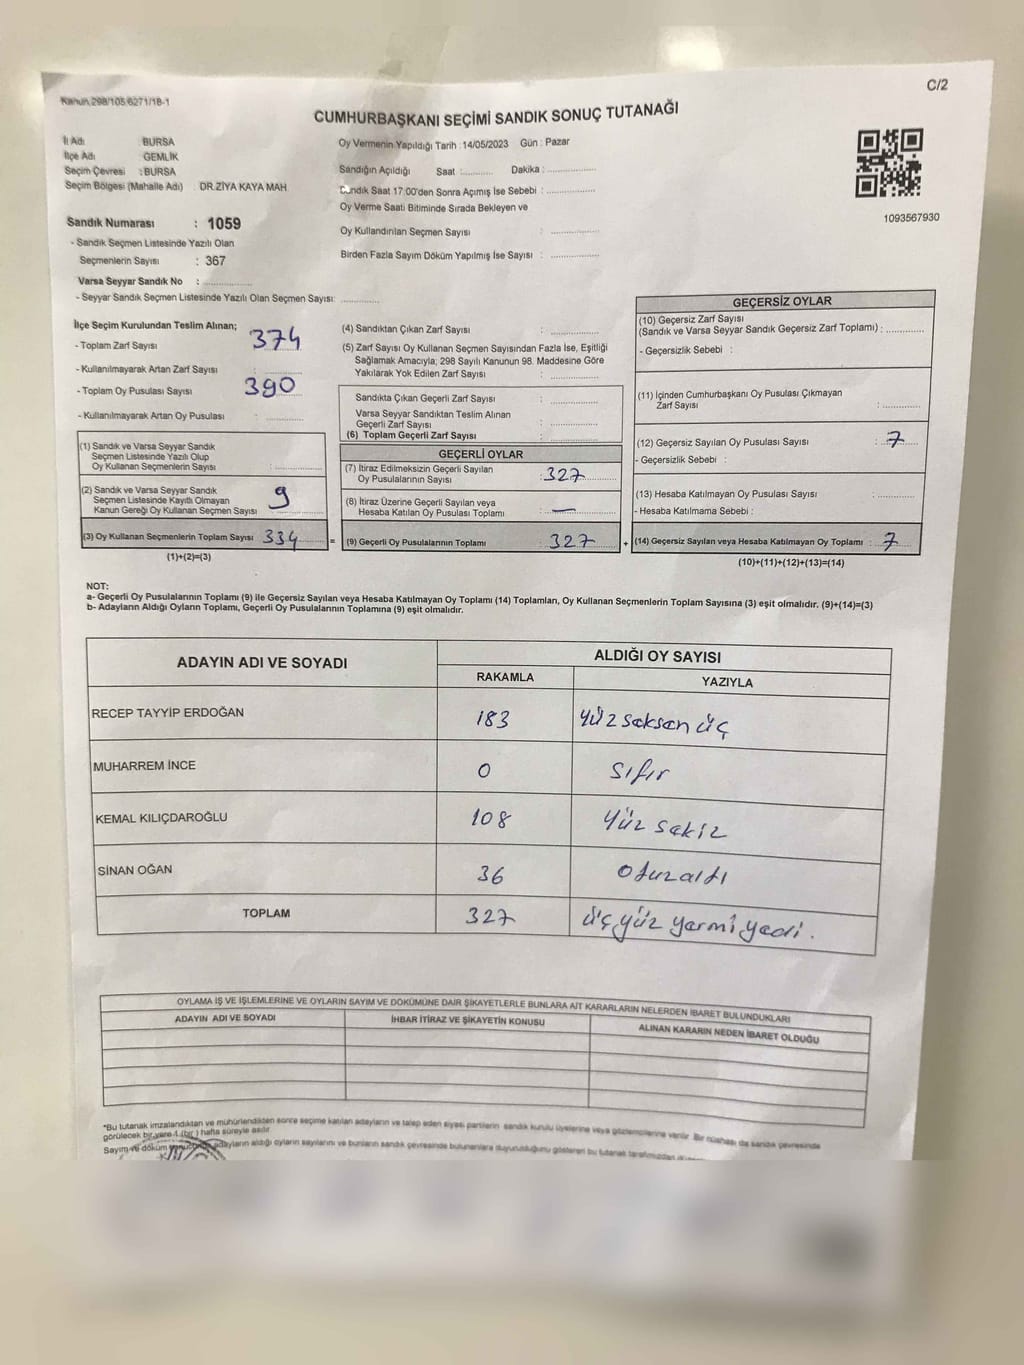 Kanun 298/105/6271/18-1
C/2
CUMHURBAŞKANI SEÇİMİ SANDIK SONUÇ TUTANAĞI
İl Adı : BURSA
İlçe Adı : GEMLİK
Seçim Çevresi : BURSA
Seçim Bölgesi (Mahalle Adı) DR.ZİYA KAYA MAH
Sandık Numarası : 1059
- Sandık Seçmen Listesinde Yazılı Olan
Seçmenlerin Sayısı : 367
Varsa Seyyar Sandık No :
- Seyyar Sandık Seçmen Listesinde Yazılı Olan Seçmen Sayısı:
Oy Vermenin Yapıldığı Tarih :14/05/2023 Gün : Pazar
Sandığın Açıldığı Saat Dakika :
Sandık Saat 17:00'den Sonra Açımış İse Sebebi :
Oy Verme Saati Bitiminde Sırada Bekleyen ve
Oy Kullandırılan Seçmen Sayısı :
Birden Fazla Sayım Döküm Yapılmış İse Sayısı :
1093567930
İlçe Seçim Kurulundan Teslim Alınan;
- Toplam Zarf Sayısı 374
- Kullanılmayarak Artan Zarf Sayısı :
- Toplam Oy Pusulası Sayısı 390
- Kullanılmayarak Artan Oy Pusulası :
(1) Sandık ve Varsa Seyyar Sandık
Seçmen Listesinde Yazılı Olup
Oy Kullanan Seçmenlerin Sayısı :
(2) Sandık ve Varsa Seyyar Sandık
Seçmen Listesinde Kayıtlı Olmayan
Kanun Gereği Oy Kullanan Seçmen Sayısı : 9
(3) Oy Kullanan Seçmenlerin Toplam Sayısı 334 =
(1)+(2)=(3)
(4) Sandıktan Çıkan Zarf Sayısı :
(5) Zarf Sayısı Oy Kullanan Seçmen Sayısından Fazla İse, Eşitliği
Sağlamak Amacıyla; 298 Sayılı Kanunun 98. Maddesine Göre
Yakılarak Yok Edilen Zarf Sayısı :
Sandıkta Çıkan Geçerli Zarf Sayısı :
Varsa Seyyar Sandıktan Teslim Alınan
Geçerli Zarf Sayısı :
(6) Toplam Geçerli Zarf Sayısı :
GEÇERLİ OYLAR
(7) İtiraz Edilmeksizin Geçerli Sayılan
Oy Pusulalarının Sayısı : 327
(8) İtiraz Üzerine Geçerli Sayılan veya
Hesaba Katılan Oy Pusulası Toplamı : —
(9) Geçerli Oy Pusulalarının Toplamı 327 +
GEÇERSİZ OYLAR
(10) Geçersiz Zarf Sayısı
(Sandık ve Varsa Seyyar Sandık Geçersiz Zarf Toplamı) :
- Geçersizlik Sebebi :
(11) İçinden Cumhurbaşkanı Oy Pusulası Çıkmayan
Zarf Sayısı :
(12) Geçersiz Sayılan Oy Pusulası Sayısı : 7
- Geçersizlik Sebebi :
(13) Hesaba Katılmayan Oy Pusulası Sayısı :
- Hesaba Katılmama Sebebi :
(14) Geçersiz Sayılan veya Hesaba Katılmayan Oy Toplamı : 7
(10)+(11)+(12)+(13)=(14)
NOT:
a- Geçerli Oy Pusulalarının Toplamı (9) ile Geçersiz Sayılan veya Hesaba Katılmayan Oy Toplamı (14) Toplamları, Oy Kullanan Seçmenlerin Toplam Sayısına (3) eşit olmalıdır. (9)+(14)=(3)
b- Adayların Aldığı Oyların Toplamı, Geçerli Oy Pusulalarının Toplamına (9) eşit olmalıdır.
ADAYIN ADI VE SOYADI ALDIĞI OY SAYISI
RAKAMLA YAZIYLA
RECEP TAYYİP ERDOĞAN 183 Yüz seksen üç
MUHARREM İNCE 0 Sıfır
KEMAL KILIÇDAROĞLU 108 Yüz sekiz
SİNAN OĞAN 36 Otuzaltı
TOPLAM 327 üçyüz yermi yedi.
OYLAMA İŞ VE İŞLEMLERİNE VE OYLARIN SAYIM VE DÖKÜMÜNE DAİR ŞİKAYETLERLE BUNLARA AİT KARARLARIN NELERDEN İBARET BULUNDUKLARI
ADAYIN ADI VE SOYADI İHBAR İTİRAZ VE ŞİKAYETİN KONUSU ALINAN KARARIN NEDEN İBARET OLDUĞU
*Bu tutanak imzalandıktan ve mühürlendikten sonra seçime katılan adayların ve talep eden siyasi partilerin sandık kurulu üyelerine veya gözlemcilerine verilir. Bir nüshası da sandık çevresinde
görülecek bir yere 1 (bir ) hafta süreyle asılır.
Sayım ve döküm adayların aldığı oyların sayılarını ve bunların sandık çevresinde bulunanlara duyurulduğunu gösteren bu tutanak tarafımızdan